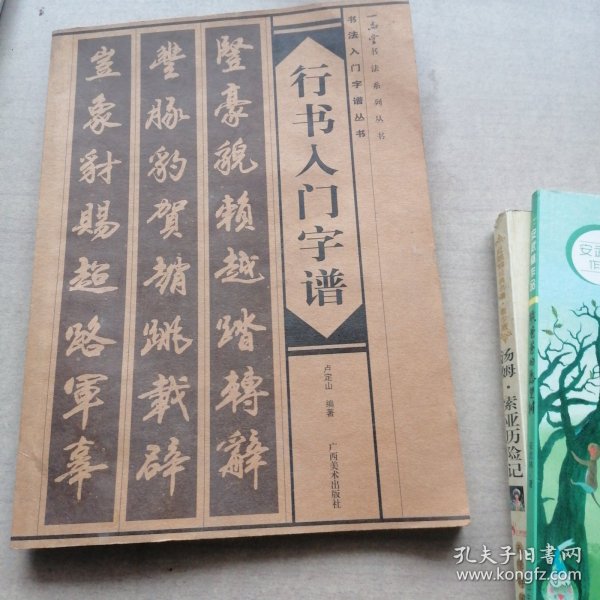 一南堂书法系列丛书
书法入门字谱丛书
行书入门字谱
卢定山 编著
广西美术出版社
豎豪貌賴越踏轉辭
豐豚豹賀趙跳載辟
豈象豺賜超路軍辜
汤姆·索亚历险记
安武
作
孔夫子旧书网
www.kongfz.com